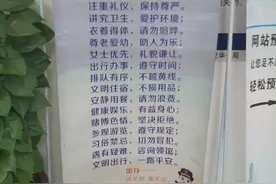 注重礼仪，保持尊严。
讲究卫生，爱护环境；
衣着得体，请勿喧哗。
尊老爱幼，助人为乐；
女士优先，礼貌谦让。
出行办事，遵守时间；
排队有序，不越黄线。
文明住宿，不损用品；
安静用餐，请勿浪费。
健康娱乐，有益身心；
赌博色情，坚决拒绝。
参观游览，遵守规定；
习俗禁忌，切勿冒犯。
遇有疑难，咨询领馆；
文明出行，一路平安。
网站预
让您足不
轻松预